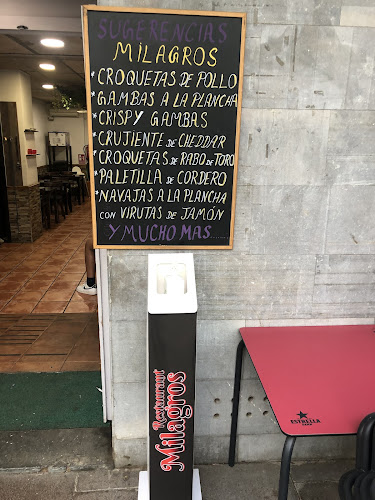 SUGERENCIAS
MILAGROS
*CROQUETAS DE POLLO
*GAMBAS A LA PLANCHA
*CRISPY GAMBAS
*CRUJIENTE DE CHEDDAR
*CROQUETAS DE RABO DE TORO
*PALETILLA DE CORDERO
*NAVAJAS A LA PLANCHA
CON VIRUTAS DE JAMÓN
Y MUCHO MAS......
Restaurant
Milagros
ESTRELLA